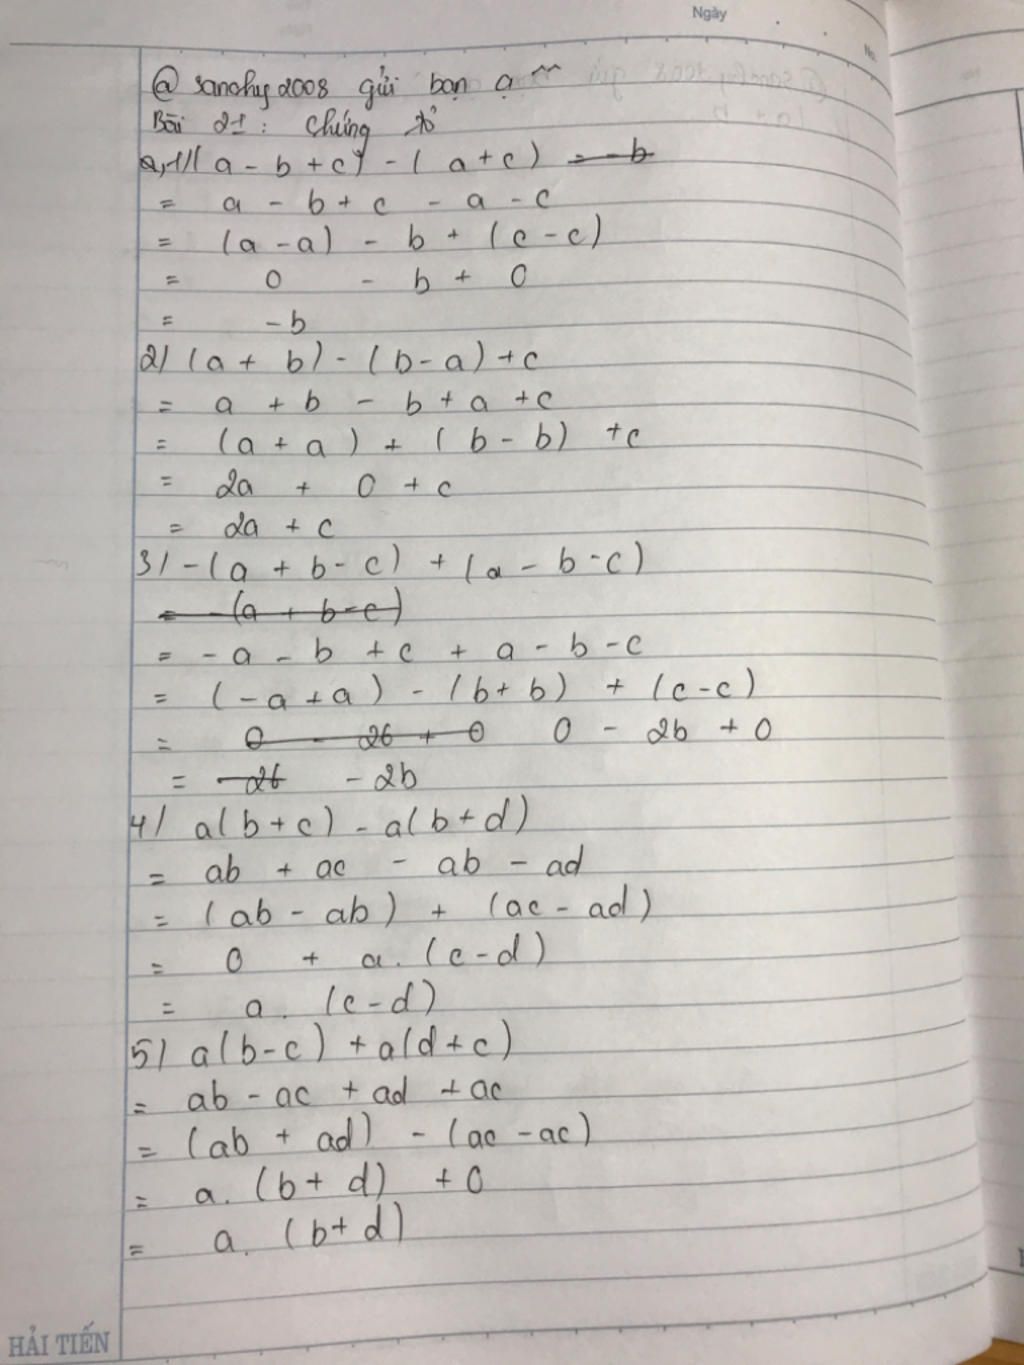 Ngày
No.
@ sanohy2008 gửi bạn ạ ~~
Bài 21: Chứng tỏ
a, 1/ (a - b + c) - (a + c) = -b
= a - b + c - a - c
= (a - a) - b + (c - c)
= 0 - b + 0
= -b
2/ (a + b) - (b - a) + c
= a + b - b + a + c
= (a + a) + (b - b) + c
= 2a + 0 + c
= 2a + c
3/ -(a + b - c) + (a - b - c)
= -(a + b - c)
= -a - b + c + a - b - c
= (-a + a) - (b + b) + (c - c)
= 0 - 2b + 0 0 - 2b + 0
= -2b -2b
4/ a(b + c) - a(b + d)
= ab + ac - ab - ad
= (ab - ab) + (ac - ad)
= 0 + a. (c - d)
= a. (c - d)
5/ a(b - c) + a(d + c)
= ab - ac + ad + ac
= (ab + ad) - (ac - ac)
= a. (b + d) + 0
= a. (b + d)
HẢI TIẾN